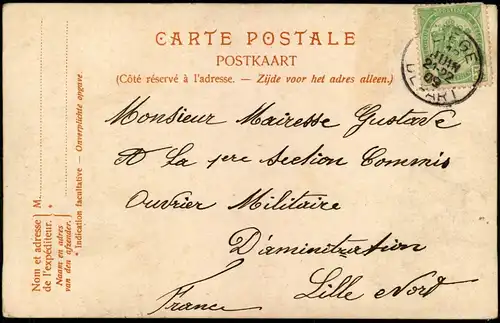 CARTE POSTALE
POSTKAART
(Côté réservé à l'adresse. — Zijde voor het adres alleen.)
Monsieur Mairesse Gustave
A La 1re Section Commis
Ouvrier Militaire
D'aminitration
Lille Nord
France
M.
Nom et adresse
de l'expéditeur.
Naam en adres
van den afzender.
* Indication facultative — Onverplichte opgave.
JUIN
DEPART